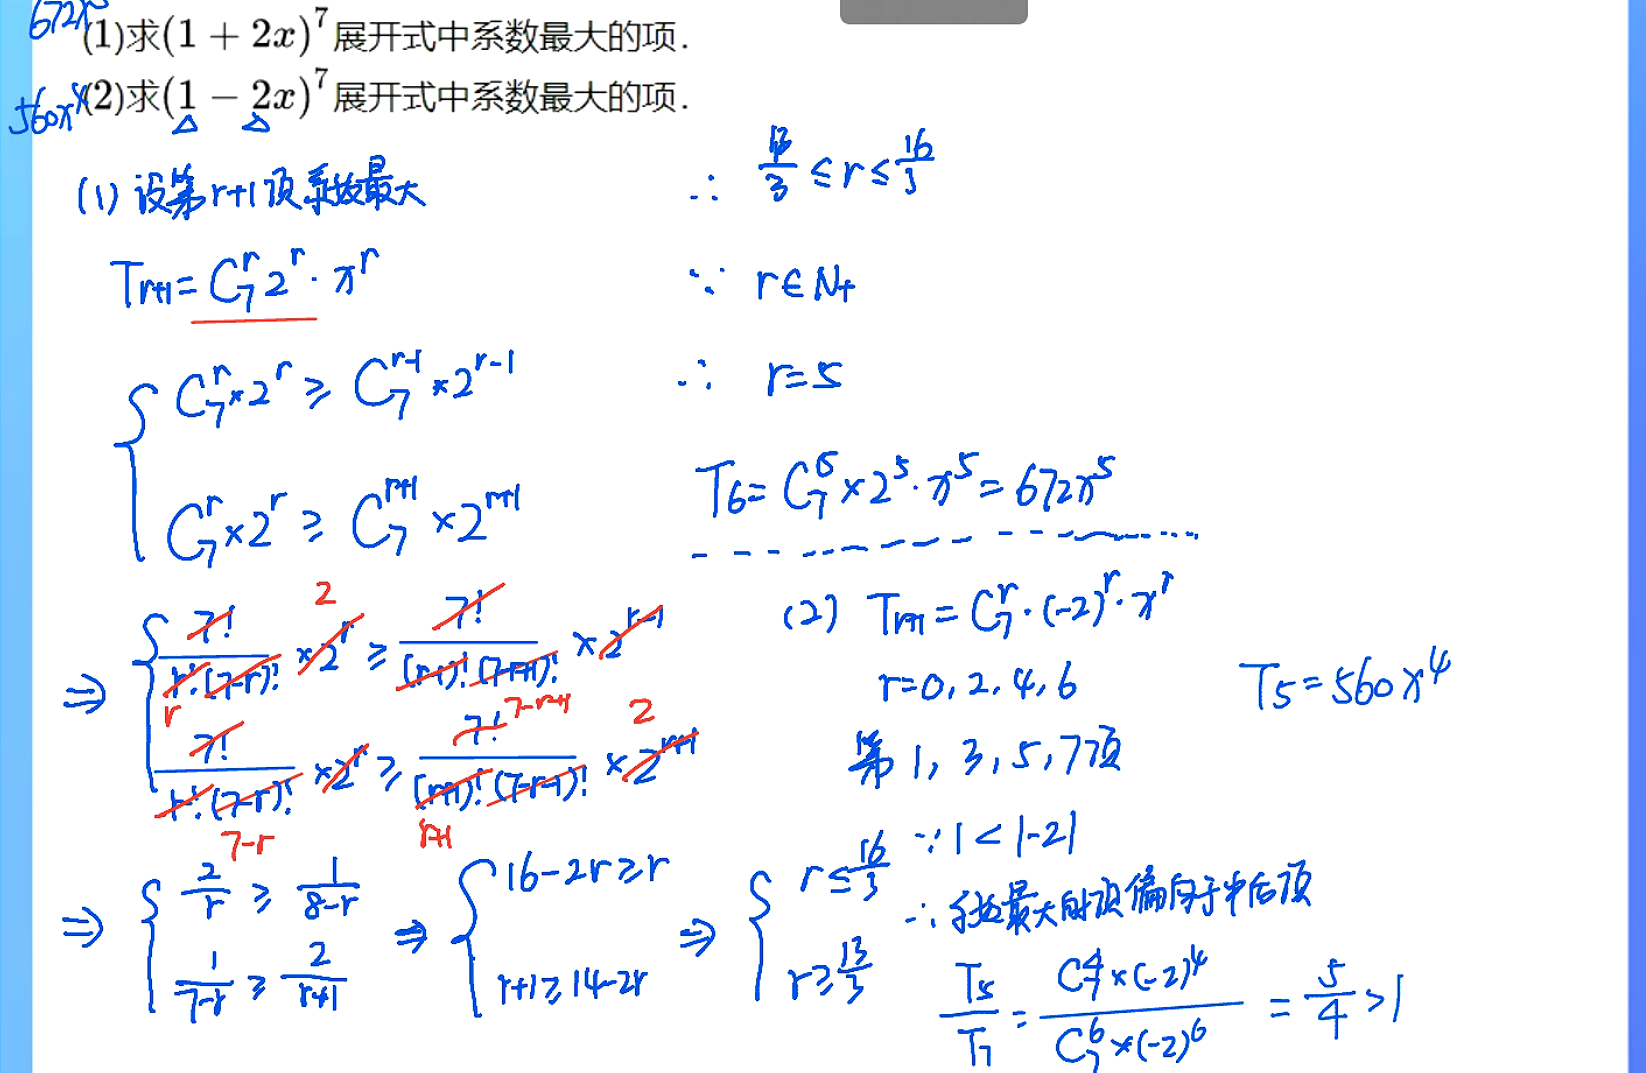 672x⁵
(1)求(1 + 2x)⁷展开式中系数最大的项.
560x⁴
(2)求(1 − 2x)⁷展开式中系数最大的项.
(1) 设第r+1项系数最大
T_{r+1} = C_7^r 2^r · x^r
{ C_7^r × 2^r ≥ C_7^{r-1} × 2^{r-1}
C_7^r × 2^r ≥ C_7^{r+1} × 2^{r+1}
⇒ { 7!/(r!·(7-r)!) × 2^r ≥ 7!/((r-1)!·(7-r+1)!) × 2^{r-1}
2
r
7-r+1
7!/(r!·(7-r)!) × 2^r ≥ 7!/((r+1)!·(7-r-1)!) × 2^{r+1}
2
7-r
r+1
⇒ { 2/r ≥ 1/(8-r)
1/(7-r) ≥ 2/(r+1)
⇒ { 16-2r ≥ r
r+1 ≥ 14-2r
⇒ { r ≤ 16/3
r ≥ 13/3
∴ 13/3 ≤ r ≤ 16/3
∵ r∈N₊
∴ r=5
T₆ = C_7^5 × 2^5 · x^5 = 672x⁵
(2) T_{r+1} = C_7^r · (-2)^r · x^r
r=0, 2, 4, 6
第1, 3, 5, 7项
∵ 1 < |-2|
∴ 系数最大的项偏向于中后项
T₅/T₇ = C_7^4 × (-2)^4 / C_7^6 × (-2)^6 = 5/4 > 1
T₅ = 560x⁴